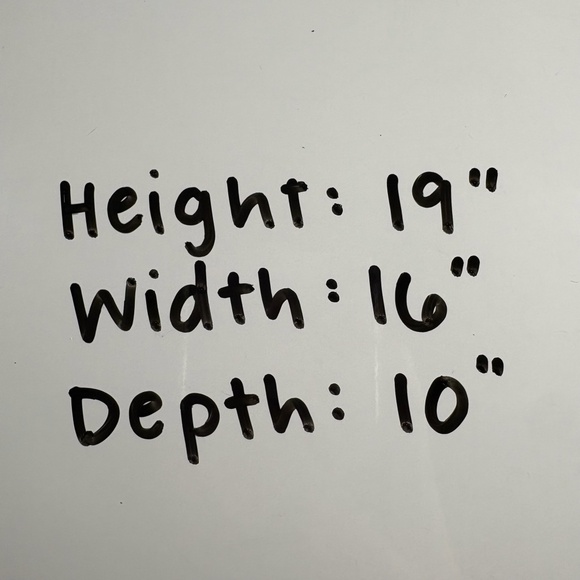 Height: 19"
Width: 16"
Depth: 10"